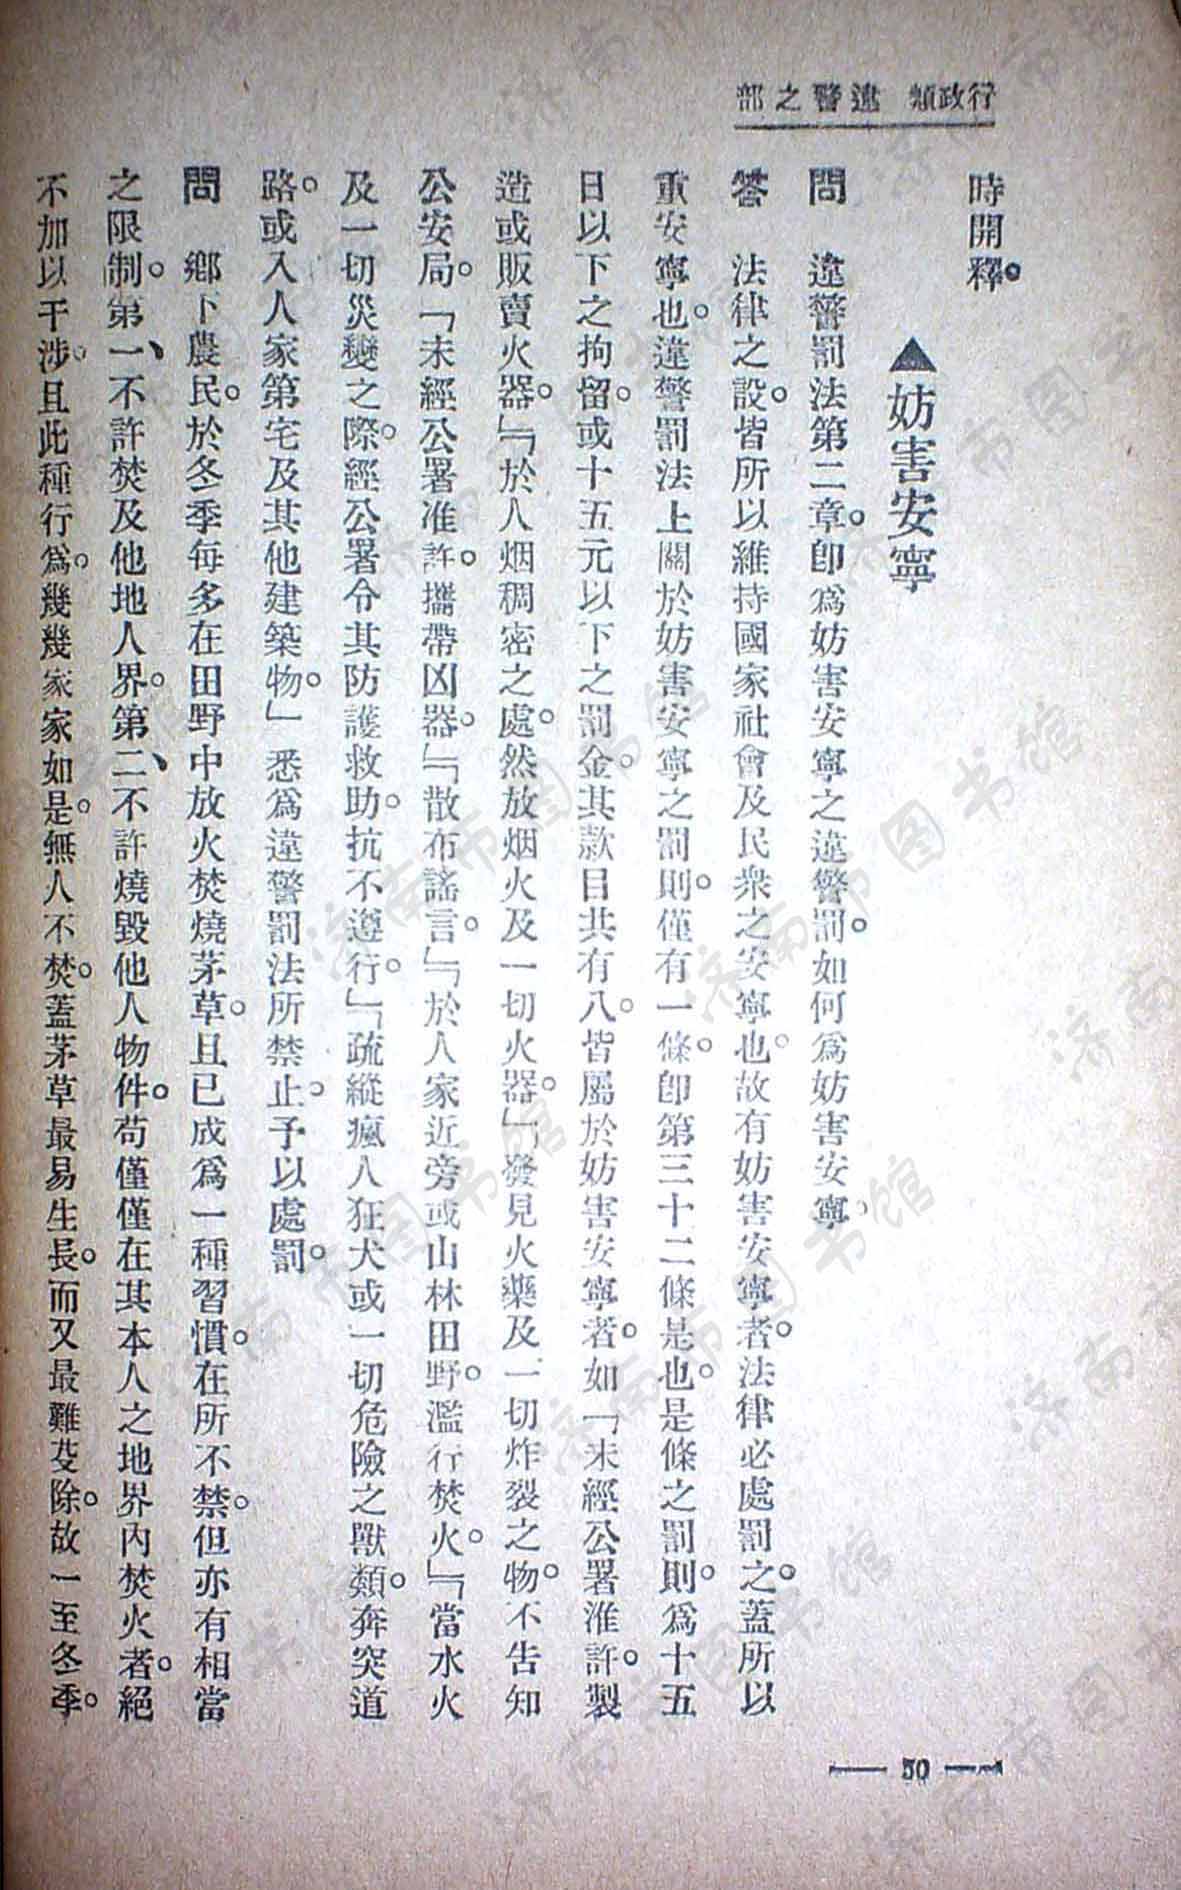 行政類 違警之部
時開釋。
▲妨害安寧
問　違警罰法第二章。卽爲妨害安寧之違警罰。如何爲妨害安寧。
答　法律之設。皆所以維持國家社會及民衆之安寧也。故有妨害安寧者。法律必處罰之。蓋所以
重安寧也。違警罰法上關於妨害安寧之罰則。僅有一條。卽第三十二條是也。是條之罰則。爲十五
日以下之拘留。或十五元以下之罰金。其款目共有八。皆屬於妨害安寧者。如「未經公署准許。製
造或販賣火器。」「於人烟稠密之處。然放烟火及一切火器。」「發見火藥及一切炸裂之物。不告知
公安局。「未經公署准許。攜帶凶器。」「散布謠言。」「於人家近旁或山林田野。濫行焚火。」「當水火
及一切災變之際。經公署令其防護救助。抗不遵行。」「疏縱瘋人狂犬或一切危險之獸類。奔突道
路。或入人家第宅及其他建築物。」悉爲違警罰法所禁止。予以處罰。
問　鄉下農民。於冬季每多在田野中放火焚燒茅草。且已成爲一種習慣。在所不禁。但亦有相當
之限制。第一、不許焚及他地人界。第二、不許燒毀他人物件。苟僅僅在其本人之地界內焚火者。絕
不加以干涉。且此種行爲。幾幾家家如是。無人不焚。蓋茅草最易生長。而又最難芟除。故一至冬季。
— 50 —
济南市图书馆